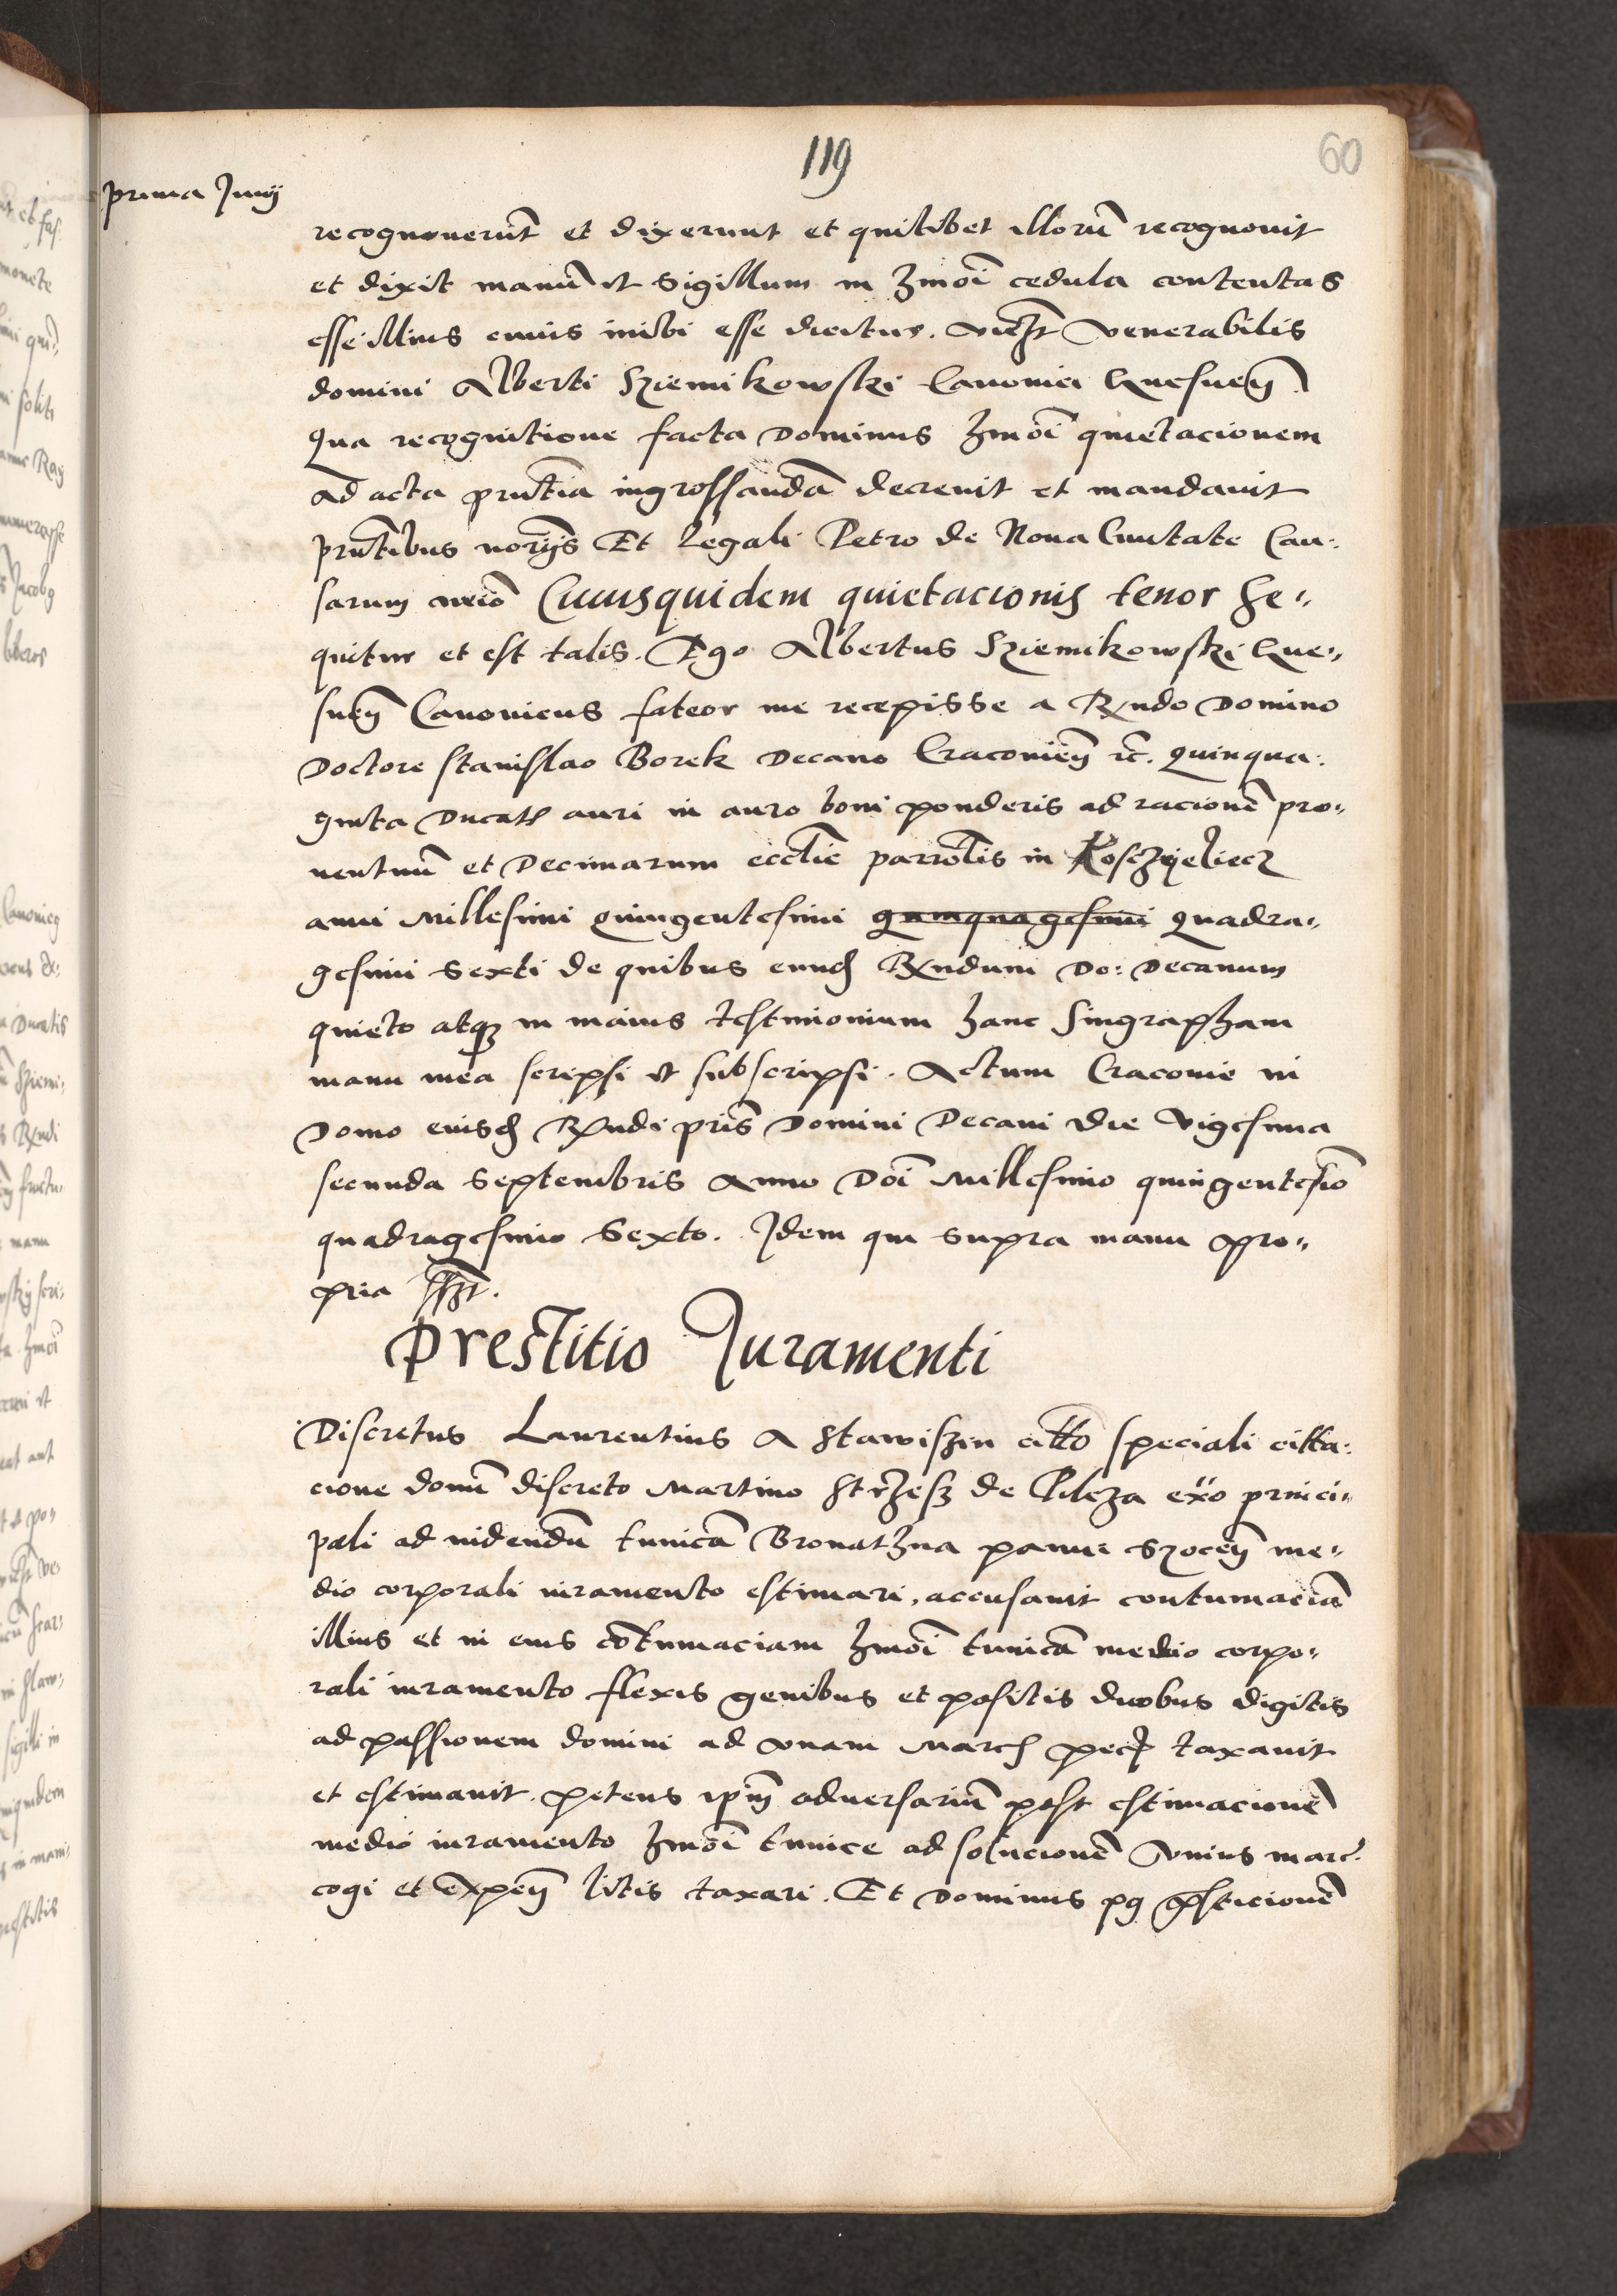 119
60
prima Junij
recognouerũt et dixerunt et quilibet illorũ recognouit
et dixit manũ et sigillum in hmõi cedula contentas
esse illius cuius inibi esse dicitur. vidz venerabilis
domini Alberti Sziemikowski Canonici Gnesneñ
Qua recognitione facta Dominus hmõi quietacionem
ad acta pñtia ingrossandã decreuit et mandauit
pñtibus norijs Et Legali Petro de Noua Ciuitate Cau:
sarum nrio Cuiusquidem quietacionis tenor se:,
quitur et est talis. Ego Albertus Sziemikowski Gne:,
sneñ Canonicus fateor me recepisse a Rndo Domino
Doctore Stanislao Borek Decano Cracovieñ rc. quinqua:
ginta Ducat auri in auro boni ponderis ad racionẽ pro:,
uentuũ et Decimarum ecclie parrolis in Kosczyeliecz
anni Millesimi quingentesimi quinquagesimi Quadra:,
gesimi sexti de quibus eund Rndum Do: Decanum
quieto atq in maius testimonium hanc singrapham
manu mea scripsi et subscripsi. Actum Cracovie in
Domo eiusd Rndi pris Domini Decani die vigesima
secunda Septembris Anno Dõi Millesimo quingentesio
quadragesimo Sexto. Idem qui supra manu pro:,
pria sszt.
Prestitio Juramenti
Discretus Laurentius A Stawiszin citto speciali citta:
cione domũ discreto Martino Strzesz de Pilcza exo princi:,
pali ad uidendũ tunicã Bronathna panni Szoceñ me:,
dio corporali iuramento estimari, accusauit contumaciã
illius et in eius cõtumaciam hmõi tunicã medio corpo:,
rali iuramento flexis genibus et positis duobus digitis
ad passionem domini ad vnam March pec taxauit
et estimauit. petens ipm aduersariũ post estimacionẽ
medio iuramento hmõi tunice ad solucionẽ vnius marc.
cogi et expeñ litis taxari. Et Dominus pg psticionẽ